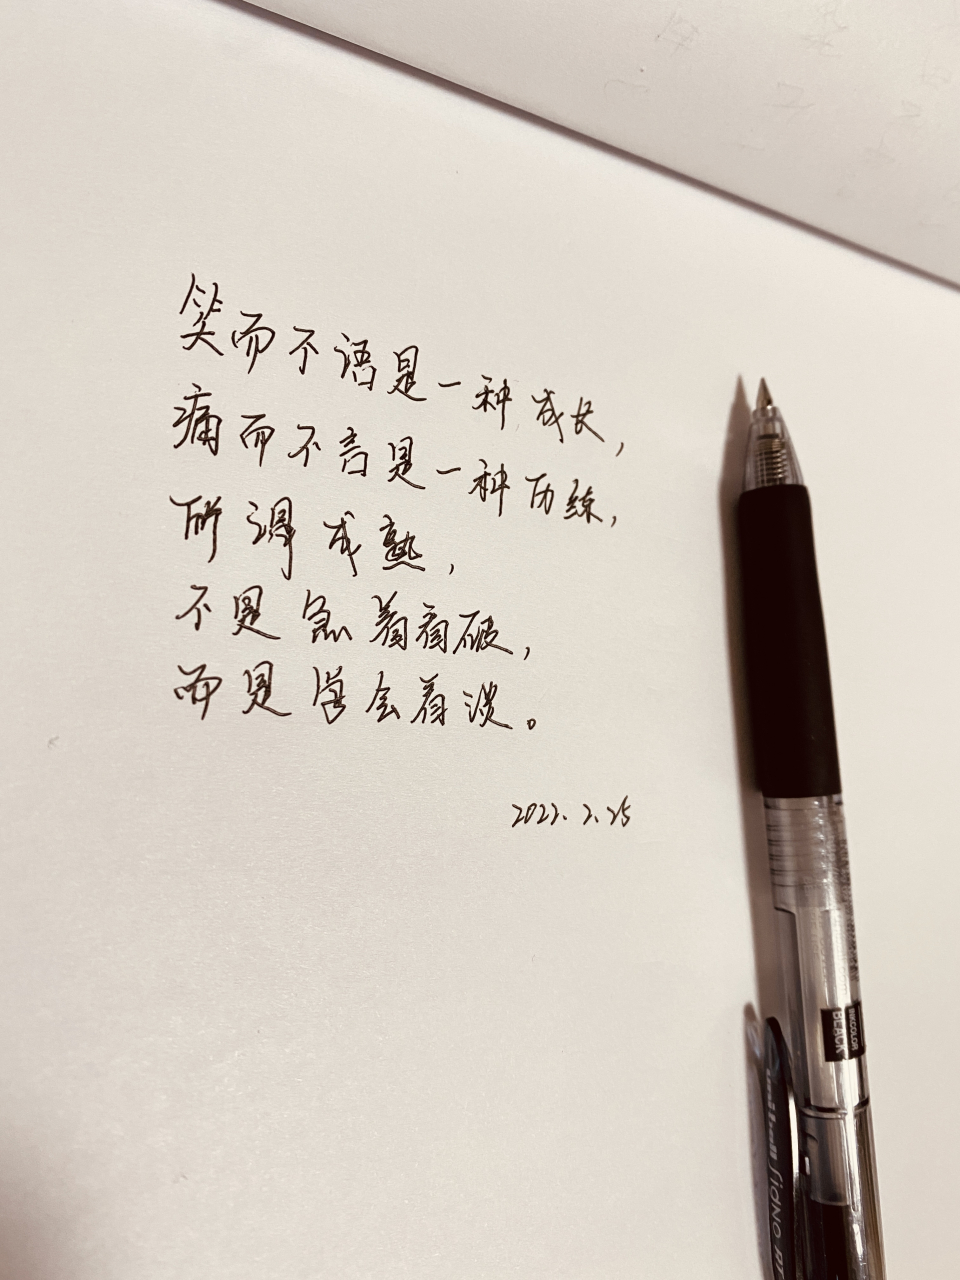 笑而不语是一种成长，
痛而不言是一种历练，
所谓成熟，
不是急着看破，
而是学会看淡。
2022.2.25
INKCOLOR
BLACK